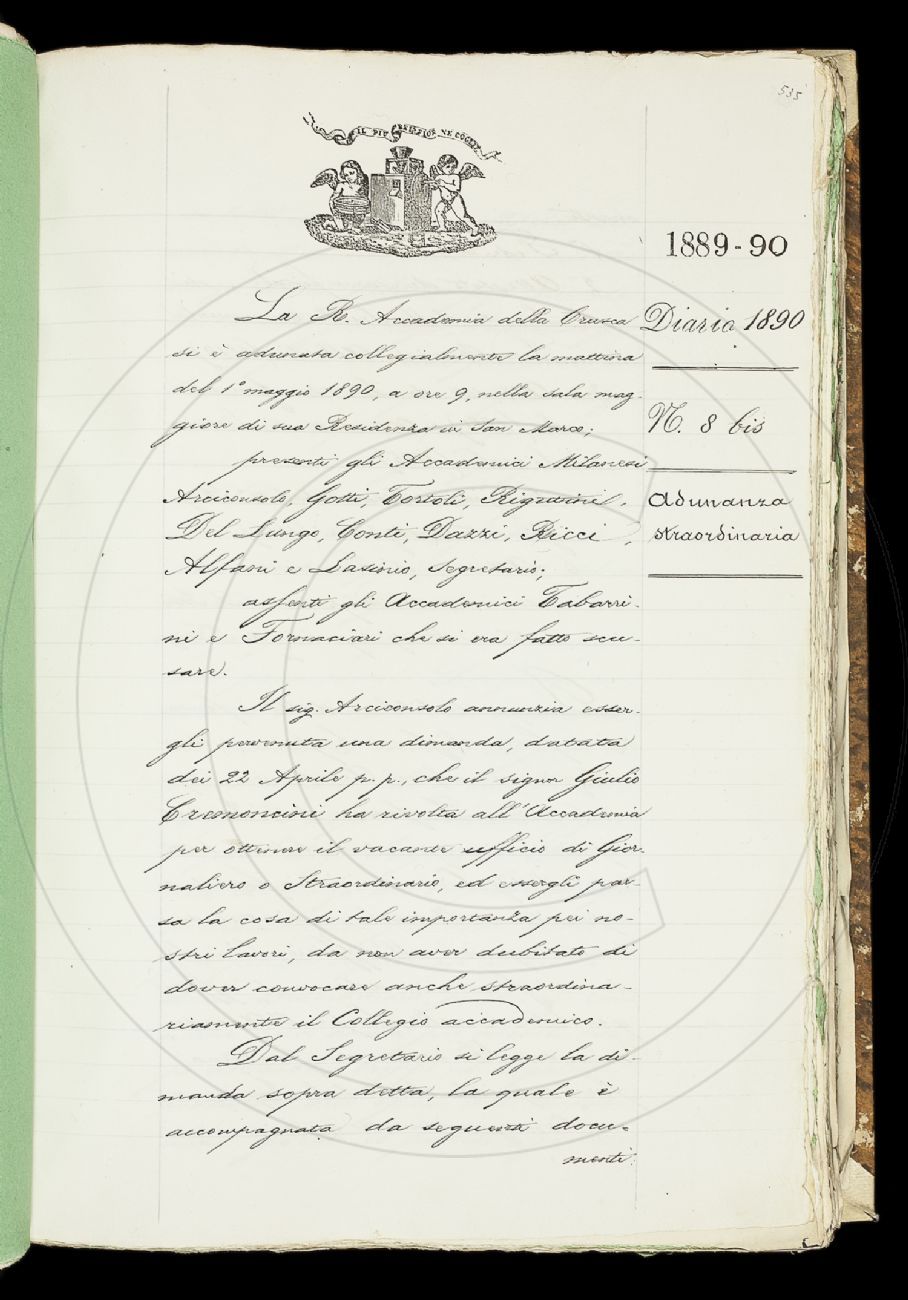 535
IL PIÙ BEL FIOR NE COGLIE
1889-90
Diario 1890
N. 8 bis
Adunanza
straordinaria
La R. Accademia della Crusca
si è adunata collegialmente la mattina
del 1° maggio 1890, a ore 9, nella sala mag-
giore di sua Residenza in San Marco;
presenti gli Accademici Milanesi
Arciconsolo, Gotti, Tortoli, Rigutini,
Del Lungo, Conti, Dazzi, Ricci,
Alfani e Lasinio, Segretario;
assenti gli Accademici Tabarri-
ni e Fornaciari che si era fatto scu-
sare.
Il sig. Arciconsolo annunzia esser-
gli pervenuta una dimanda, datata
dei 22 Aprile p. p., che il signor Giulio
Cremoncini ha rivolta all'Accademia
per ottenere il vacante ufficio di Gior-
naliero o Straordinario, ed essergli par-
sa la cosa di tale importanza pei no-
stri lavori, da non aver dubitato di
dover convocare anche straordina-
riamente il Collegio accademico.
Dal Segretario si legge la di-
manda sopra detta, la quale è
accompagnata da seguenti docu-
menti: